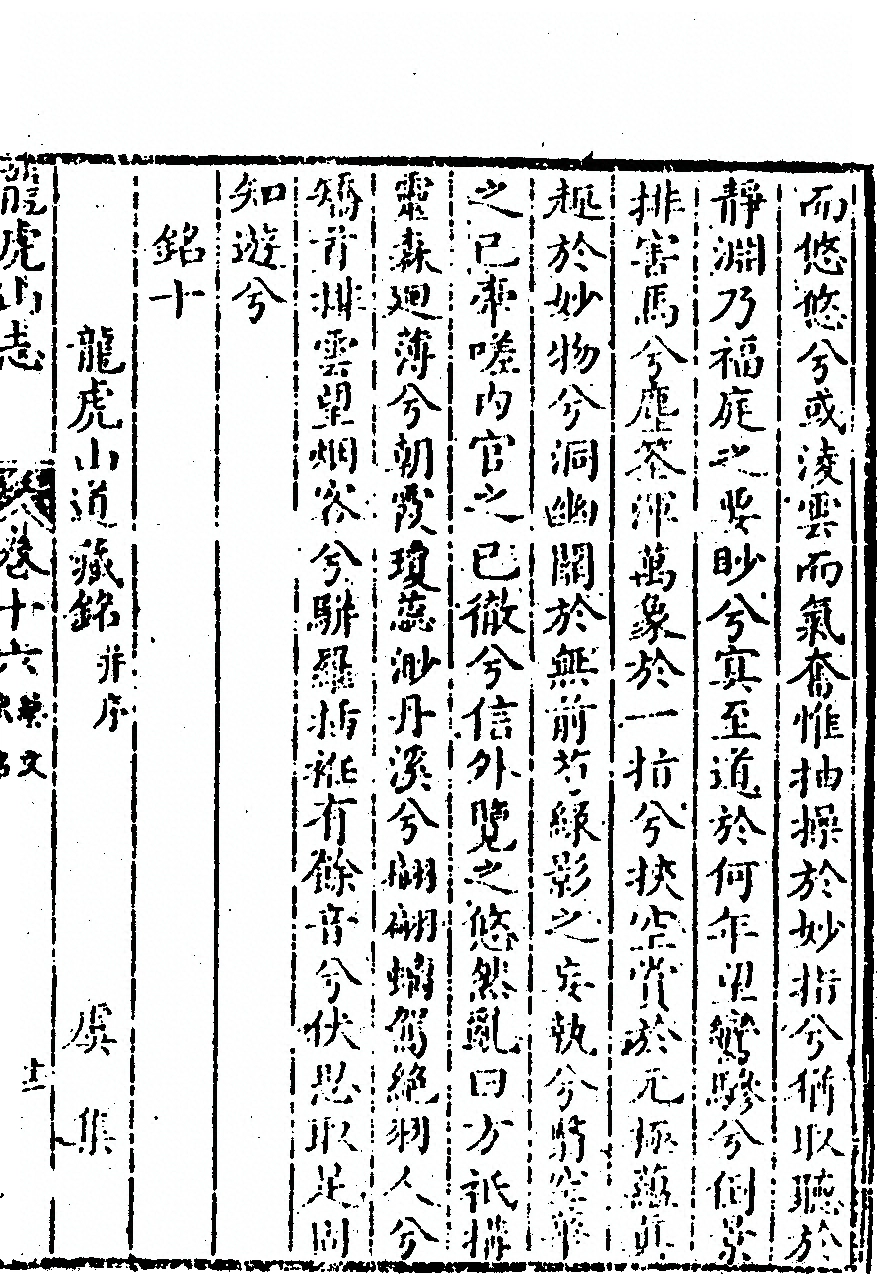 而悠悠兮或淩雲而氣奮惟抽操於妙指兮猶取聽於
靜淵乃福庭之要眇兮寘至道於何年望鸞驂兮倒景
排害馬兮塵容渾萬象於一指兮挾空賞於元極蘊真
趣於妙物兮洞幽關於無前芳綠影之妄執兮騎空筆
之已牽嗟內官之已徹兮信外覽之悠然亂曰方祇構
靈森廻薄兮朝霞瓊蕊渺丹溪兮翩翩螭駕絕物人兮
矯首排雲望烟客兮駢羅旌袿有餘音兮伏思取足同
知遊兮
銘十
龍虎山道藏銘并序 虞集
龍虎山志 卷十六 藝文 十二